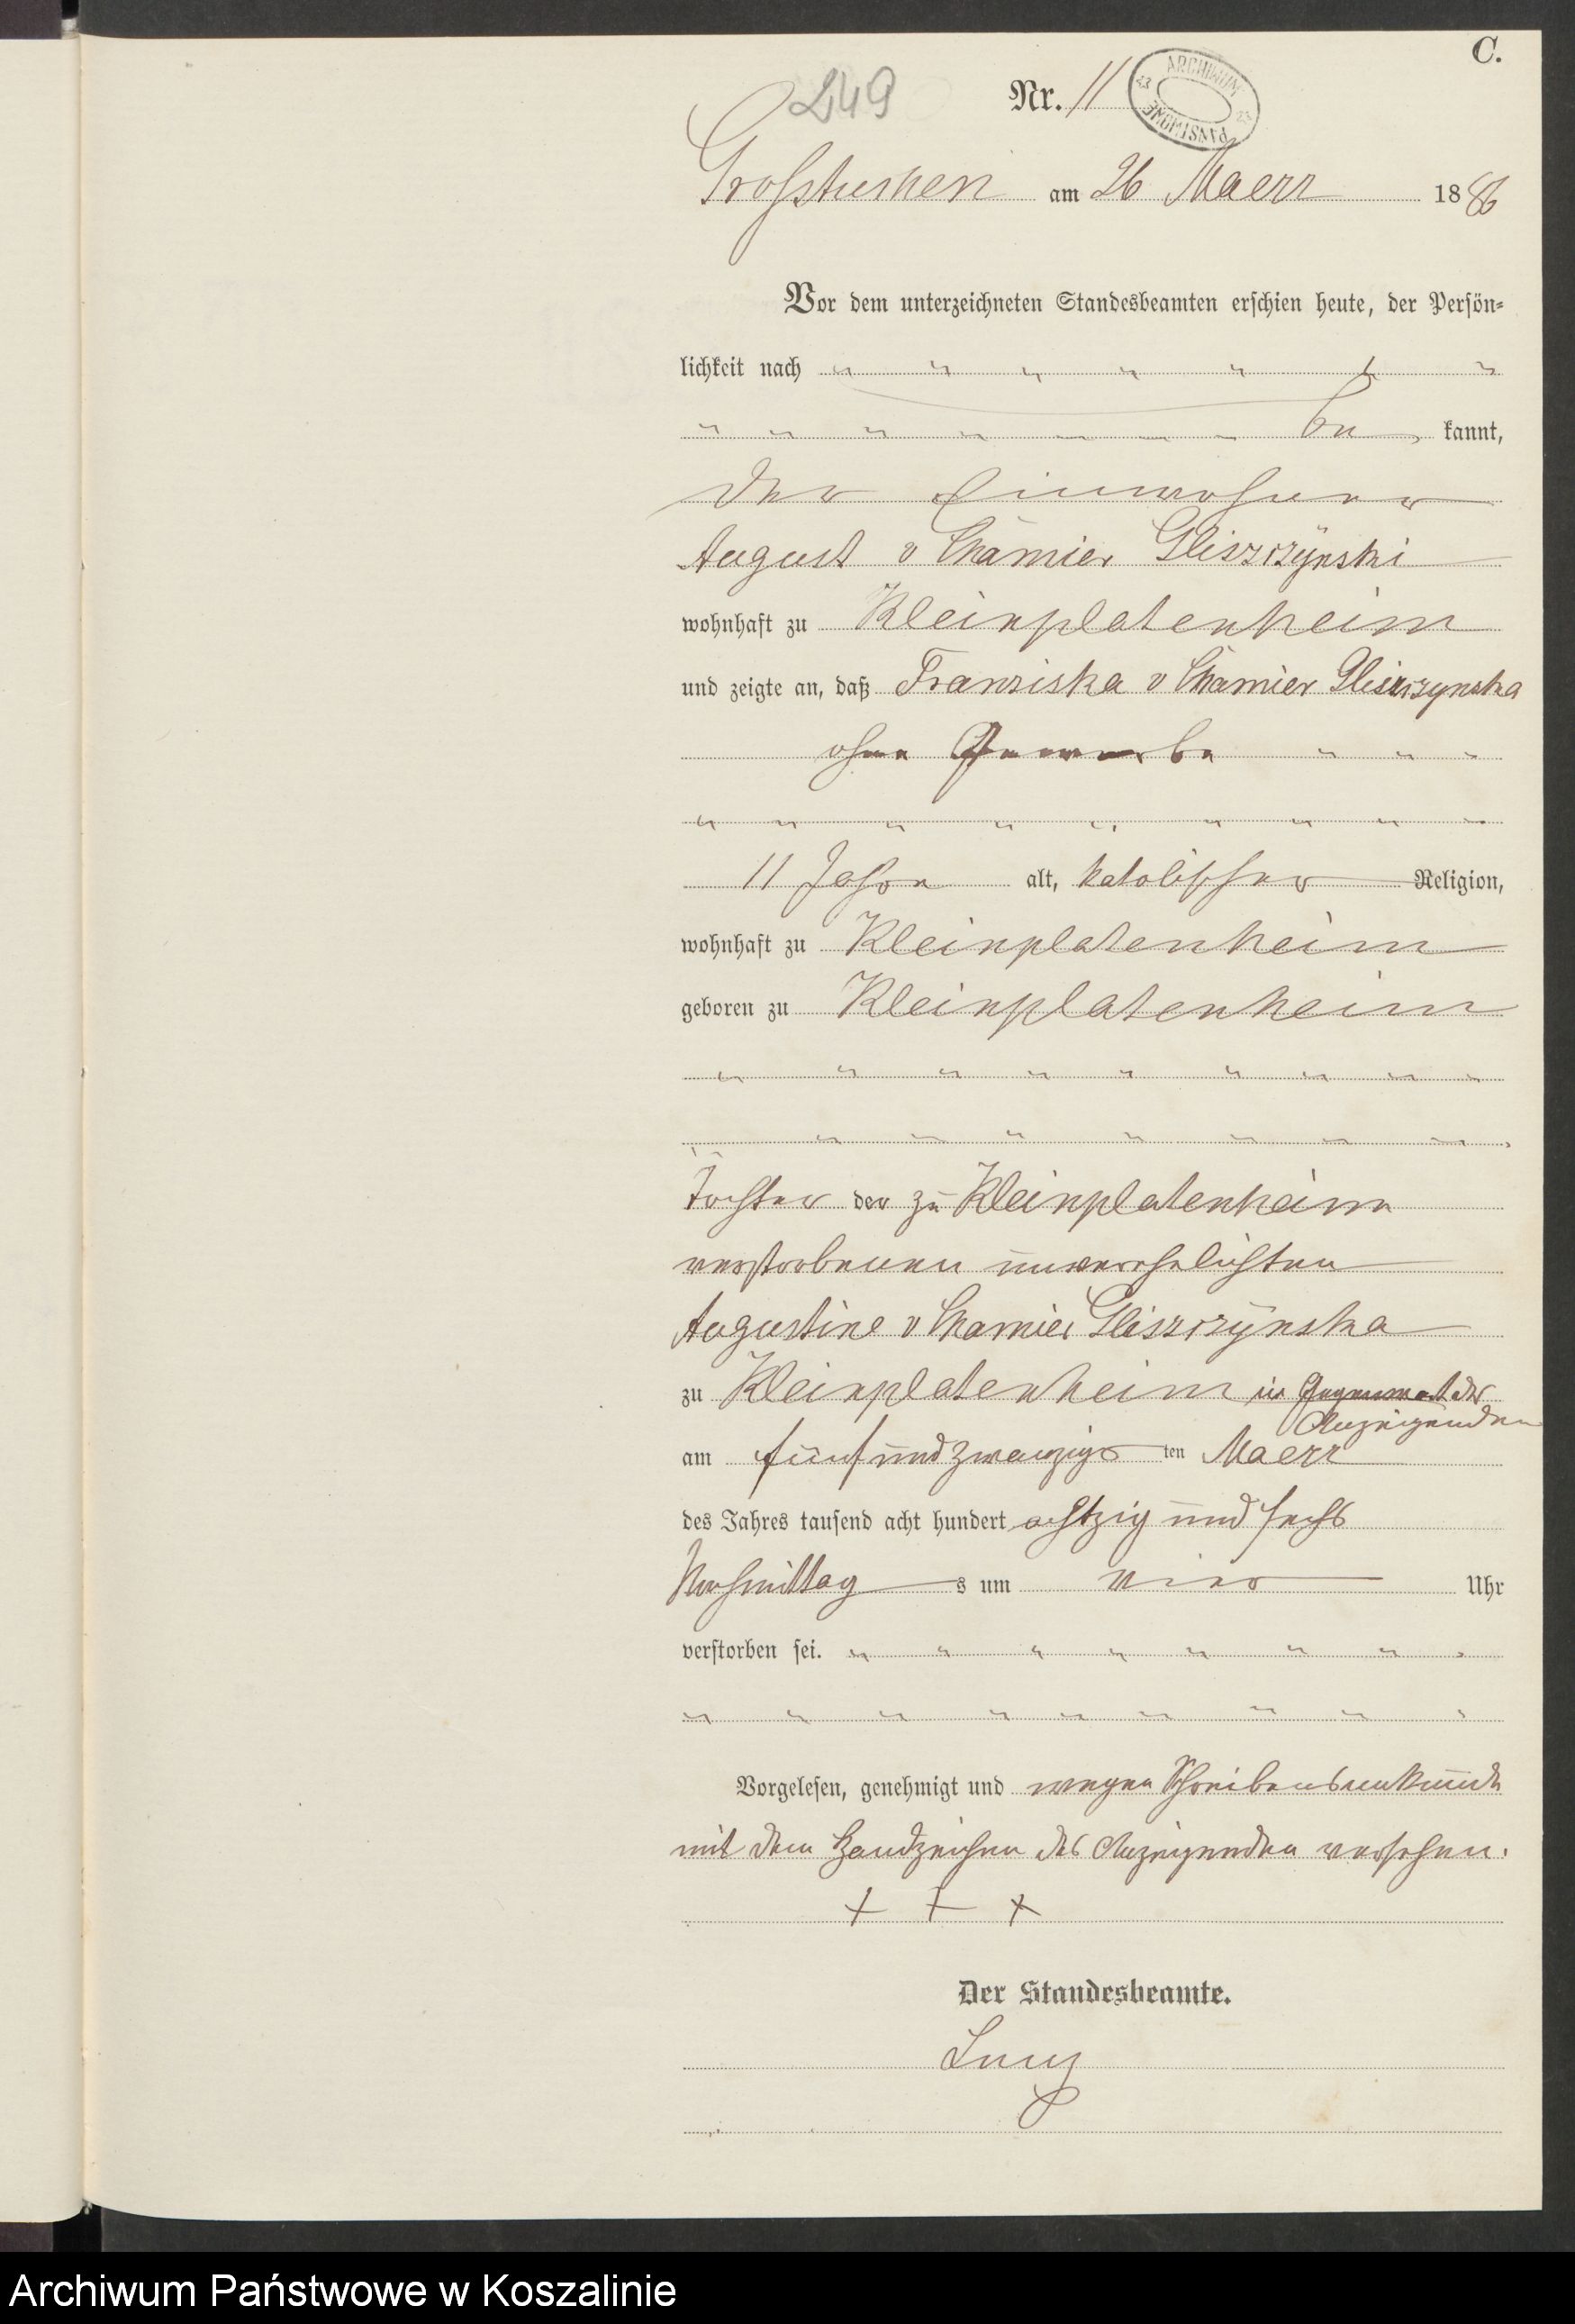 C.
249
Nr. 11
ARCHIWUM PAŃSTWOWE
Grosstuchen am 26 Maerz 1886
Vor dem unterzeichneten Standesbeamten erschien heute, der Persön-
lichkeit nach " " " " " " "
" " " " — — — be kannt,
der Einwohner
August v Chamier Gliszczynski
wohnhaft zu Kleinplatenheim
und zeigte an, daß Franziska v Chamier Gliszczynska
ohne Gewerbe " " "
" " " " " " " " "
11 Jahre alt, katolischer Religion,
wohnhaft zu Kleinplatenheim
geboren zu Kleinplatenheim
" " " " " " " " "
" " " " " " "
Tochter der zu Kleinplatenheim
verstorbenen unverehelichten
Augustine v Chamier Gliszczynska
zu Kleinplatenheim in Gegenwart des
Anzeigenden
am fünf und zwanzigs ten Maerz
des Jahres tausend acht hundert achtzig und sechs
Nachmittag s um vier Uhr
verstorben sei. " " " " " " " "
" " " " " " " " "
Vorgelesen, genehmigt und wegen Schreibensunkunde
mit dem Handzeichen des Anzeigenden versehen.
+ + +
Der Standesbeamte.
Archiwum Państwowe w Koszalinie